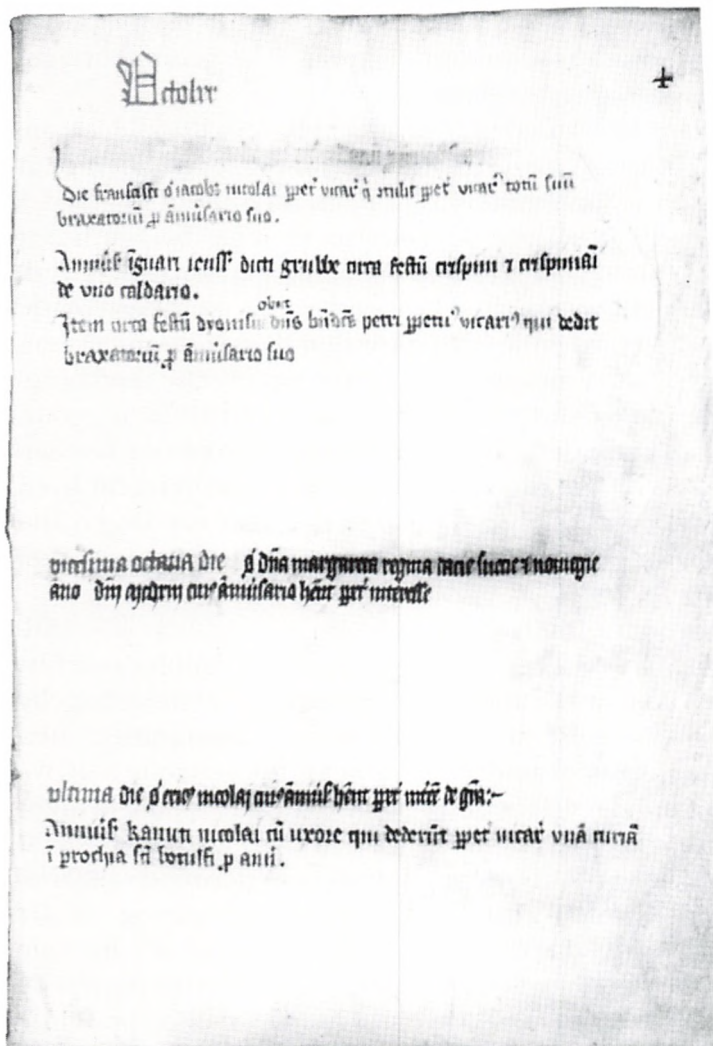 October
Die francisci ō iacobꝰ nicolai ꝑpet' vicar' q̇ ꝑpet' vicar' totū suū
braxatoriū ꝓ āniu͛sario suo.
Anniu͛s īguari ienss' dicti grubbe circa festū crispini ⁊ crispiniāi
de vno caldario.
obiit
Item circa festū dyonisii dn̄s petri ꝑpetu' vicariꝰ qui dedit
braxatoriū ꝓ āniu͛sario suo
vicesima octaua die ō dn̄a margareta regina dacie suecie ⁊ norwegie
ano dn̄j mcdxij cuiꝰ āniu͛sario hn̄t ꝑpet' interesse
vltima die ō ericꝰ nicolaj cuiꝰ āniu͛s' hn̄t ꝑpet' īt'ēē de
Anniu͛s' kanuti nicolai cū uxore qui dederūt ꝑpet' vicar' vnā curiā
ī ꝑrochia sc̄i botulfi ꝓ anni.